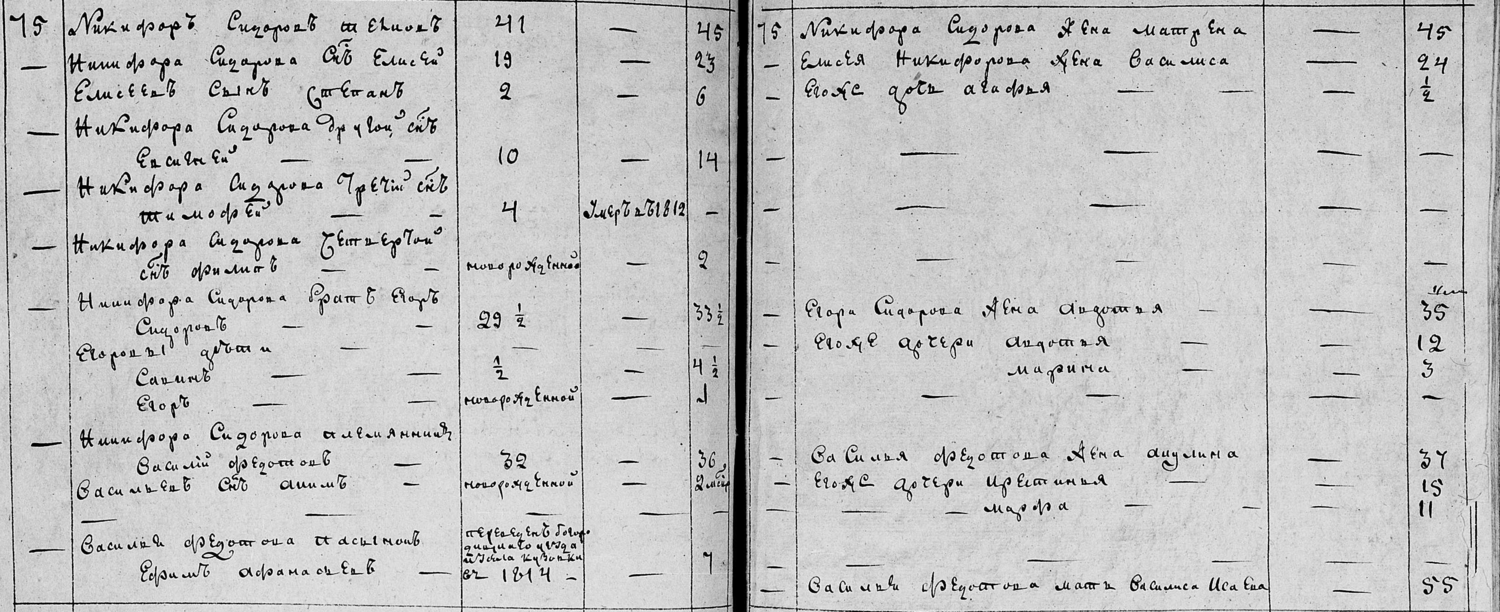 75 Никифоръ Сидоровъ 41 — 45
— Никифора Сидорова снъ Елисей 19 — 23
Елисеевъ сынъ Степанъ 2 — 6
— Никифора Сидорова другой снъ
Евсигней — — 10 — 14
— Никифора Сидорова третій снъ
Тимофей — — 4 Умеръ въ 1812 —
— Никифора Сидорова четвертой
снъ Филипъ — — новорожденной — 2
— Никифора Сидорова братъ Егоръ
Сидоровъ — — 29 ½ — 33 ½
Егоровы дѣти — —
Савинъ — — ½ — 4 ½
Егоръ — — новорожденной — 1
— Никифора Сидорова племянникъ
Василій Федотовъ — 32 — 36
Васильевъ снъ Акимъ — новорожденной — 2 мсцъ
— — — — —
— Василья Федотова пасынокъ переведенъ Богоро
дицкаго уезда
села Кузовки
Ефимъ Афанасьевъ — въ 1814 — — 7
75 Никифора Сидорова жена Матрена — 45
— Елисея Никифорова жена Василиса — 24
— Егоже дочь Агафья — — — ½
— — — — —
— — — — —
— — — — —
— Егора Сидорова жена Авдотья — — 35
— Егоже дочери Авдотья — — 12
Марина — — 3
— — — — —
— Василья Федотова жена Акулина — 37
— Егоже дочери Ирестинья — — 15
— — — Марфа — — — 11
— — — — —
— Василья Федотова мать Василиса Исаева — 55